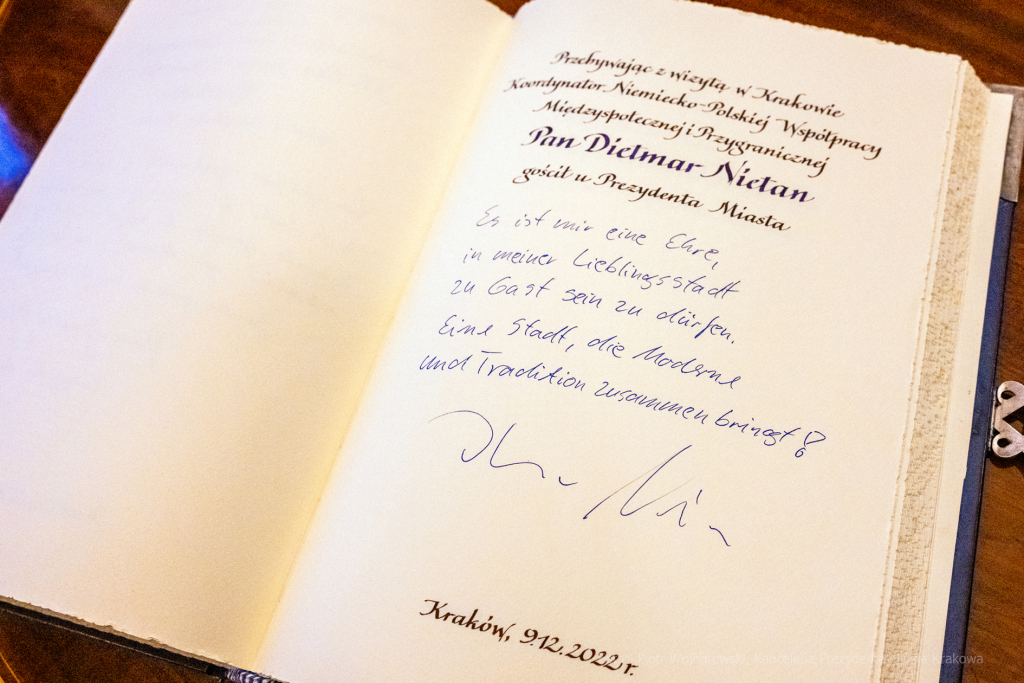 Przebywając z wizytą w Krakowie
Koordynator Niemiecko-Polskiej Współpracy
Międzyspołecznej i Przygranicznej
Pan Dietmar Nietan
gościł u Prezydenta Miasta
Es ist mir eine Ehre,
in meiner Lieblingsstadt
zu Gast sein zu dürfen.
Eine Stadt, die Moderne
und Tradition zusammen bringt!
Kraków, 9.12.2022 r.
Krakowa